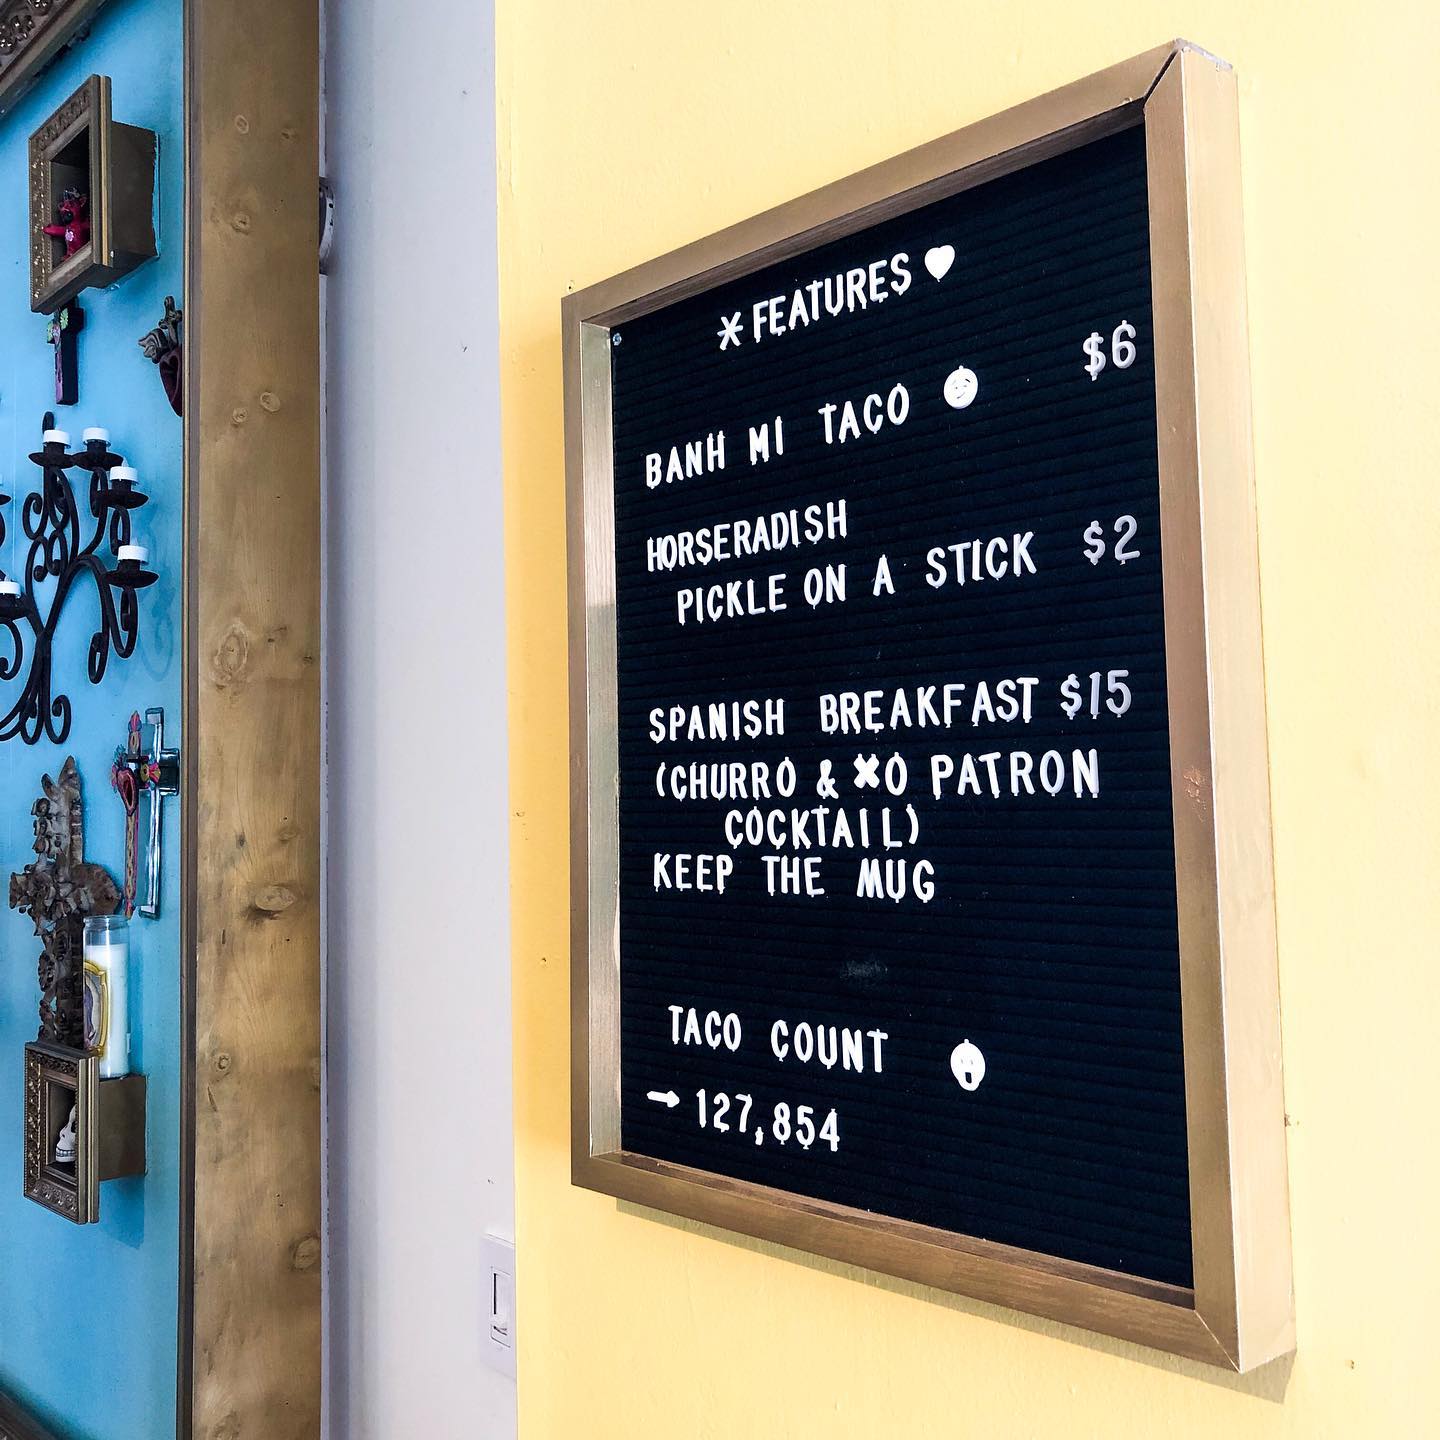 *FEATURES ♥
BANH MI TACO $6
HORSERADISH
PICKLE ON A STICK $2
SPANISH BREAKFAST $15
(CHURRO & XO PATRON
COCKTAIL)
KEEP THE MUG
TACO COUNT
→ 127,854